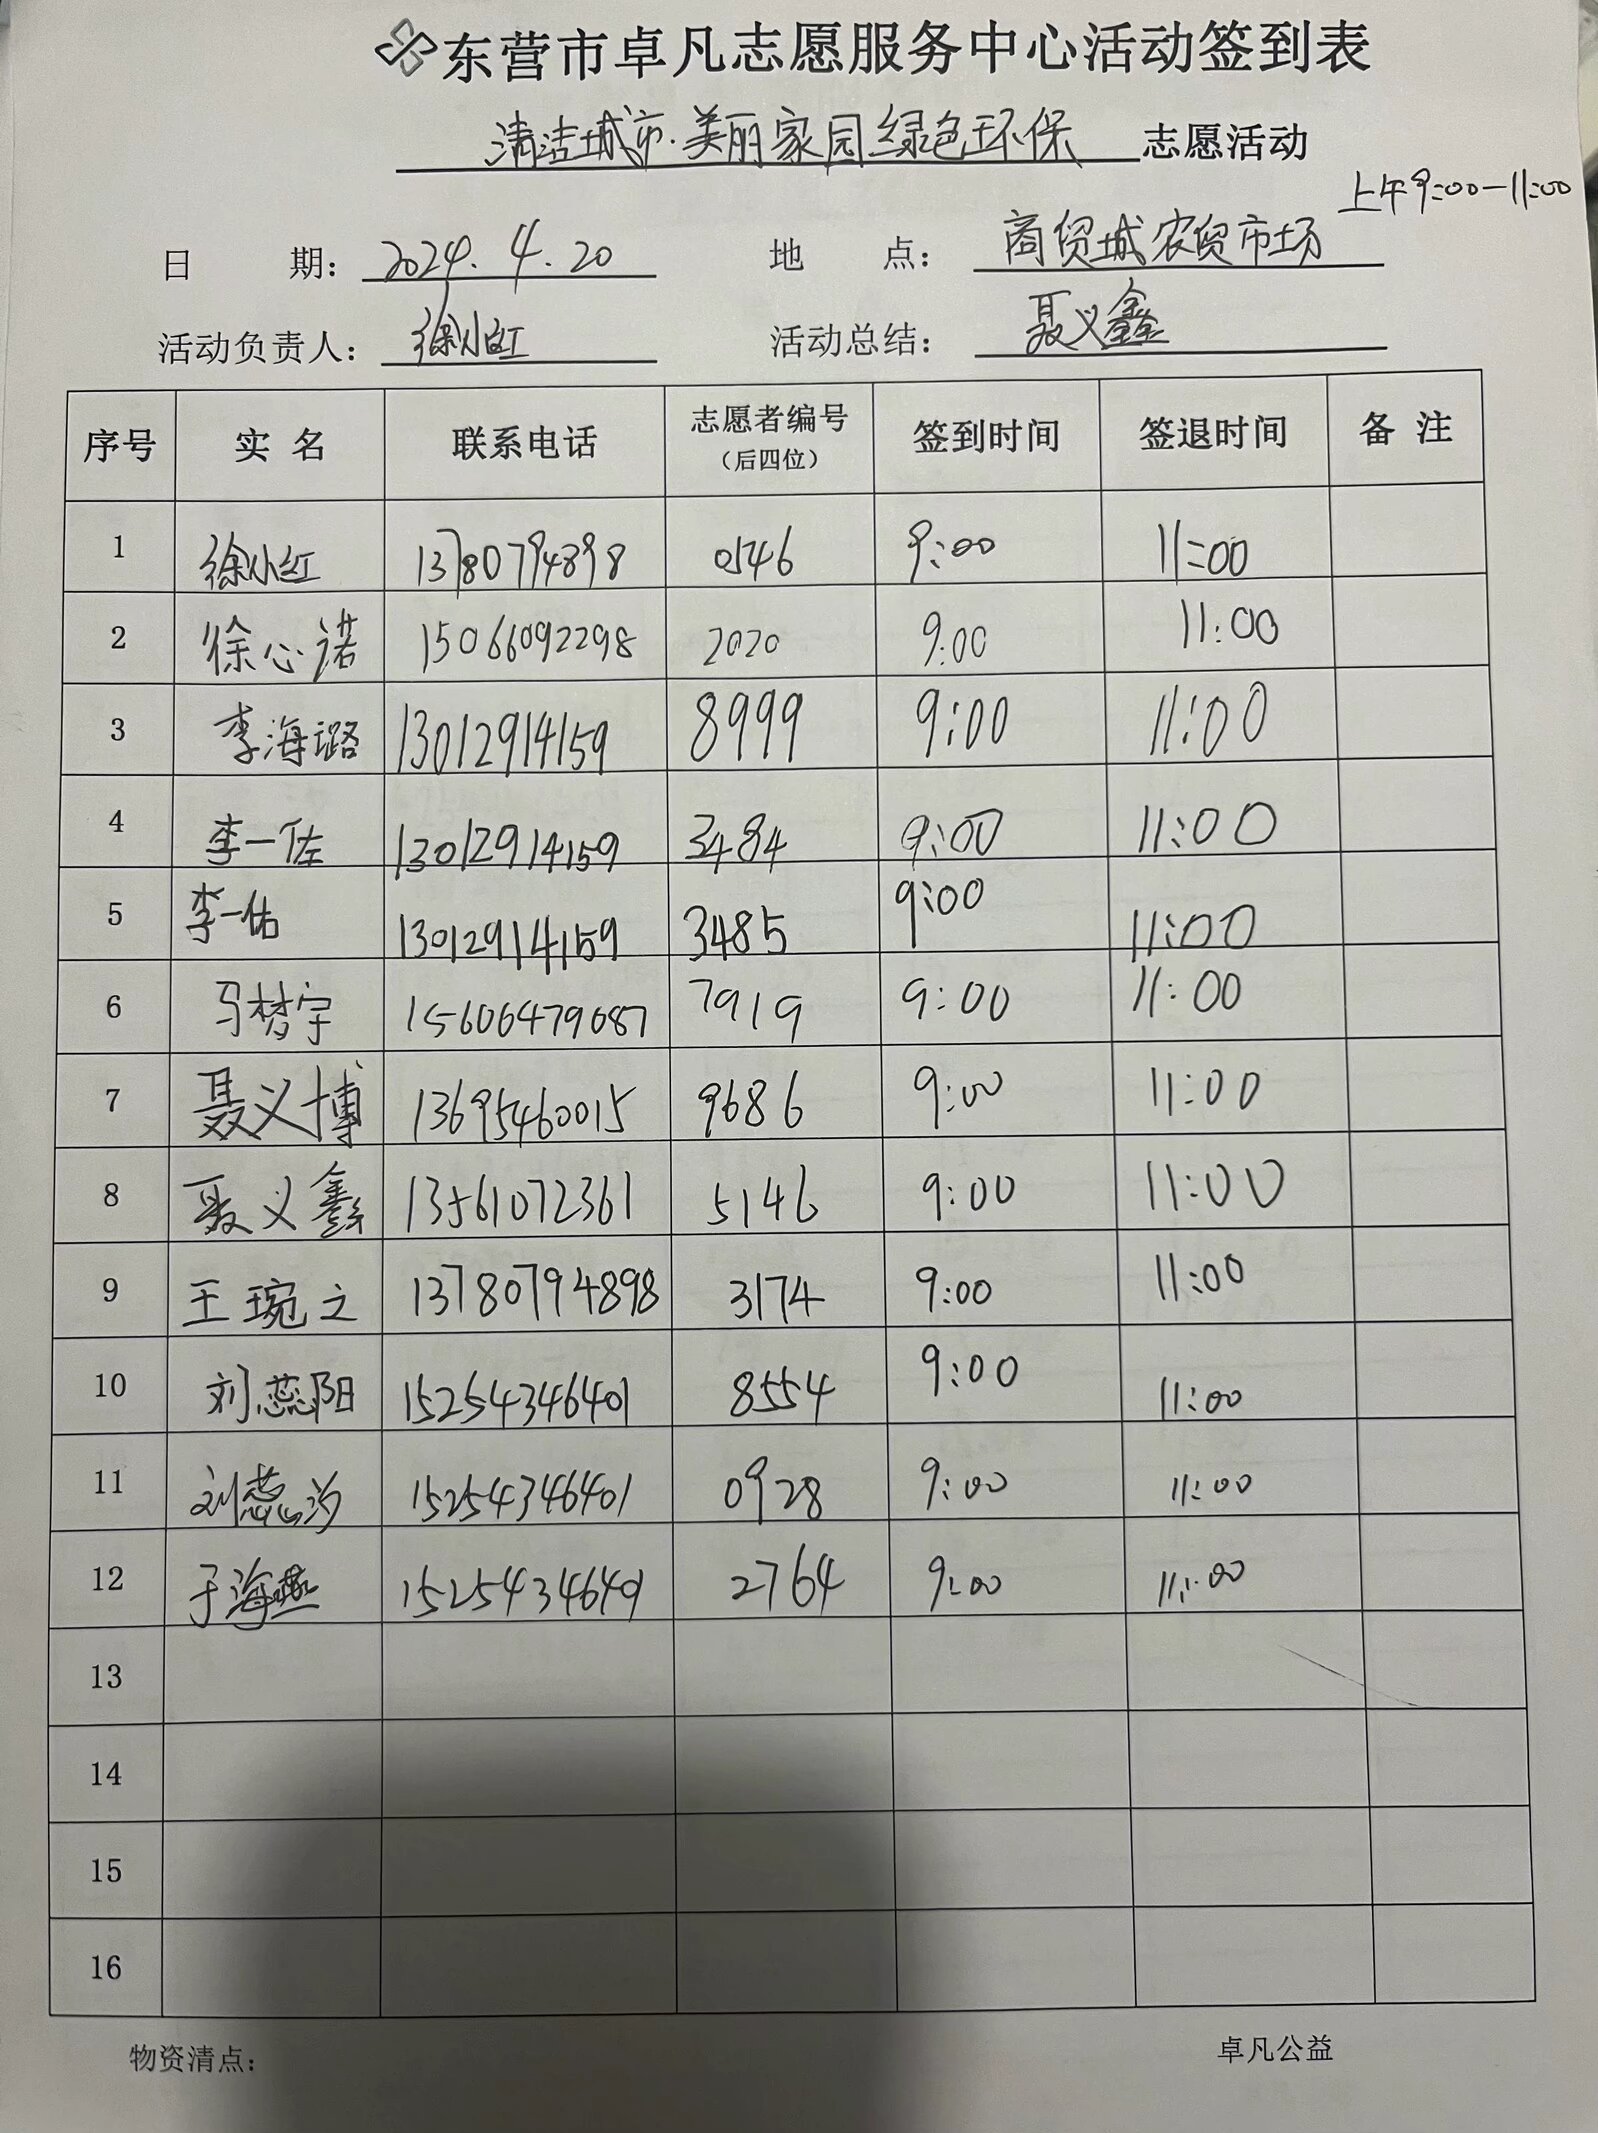 东营市卓凡志愿服务中心活动签到表
清洁城市·美丽家园绿色环保 志愿活动
上午9:00-11:00
日 期: 2024.4.20 地 点: 商贸城农贸市场
活动负责人: 徐小红 活动总结: 聂义鑫
序号 实 名 联系电话 志愿者编号(后四位) 签到时间 签退时间 备 注
1 徐小红 13780794898 0546 9:00 11:00
2 徐心诺 15066092298 2020 9:00 11:00
3 李海璐 13012914159 8999 9:00 11:00
4 李一佐 13012914159 3484 9:00 11:00
5 李一佑 13012914159 3485 9:00 11:00
6 马梦宇 15606479687 7919 9:00 11:00
7 聂义博 13695460015 9686 9:00 11:00
8 聂义鑫 13561072361 5146 9:00 11:00
9 王琬之 13780794898 3174 9:00 11:00
10 刘蕊阳 15254346401 8554 9:00 11:00
11 刘蕊汐 15254346401 0928 9:00 11:00
12 于海燕 15254346401 2764 9:00 11:00
13
14
15
16
物资清点: 卓凡公益